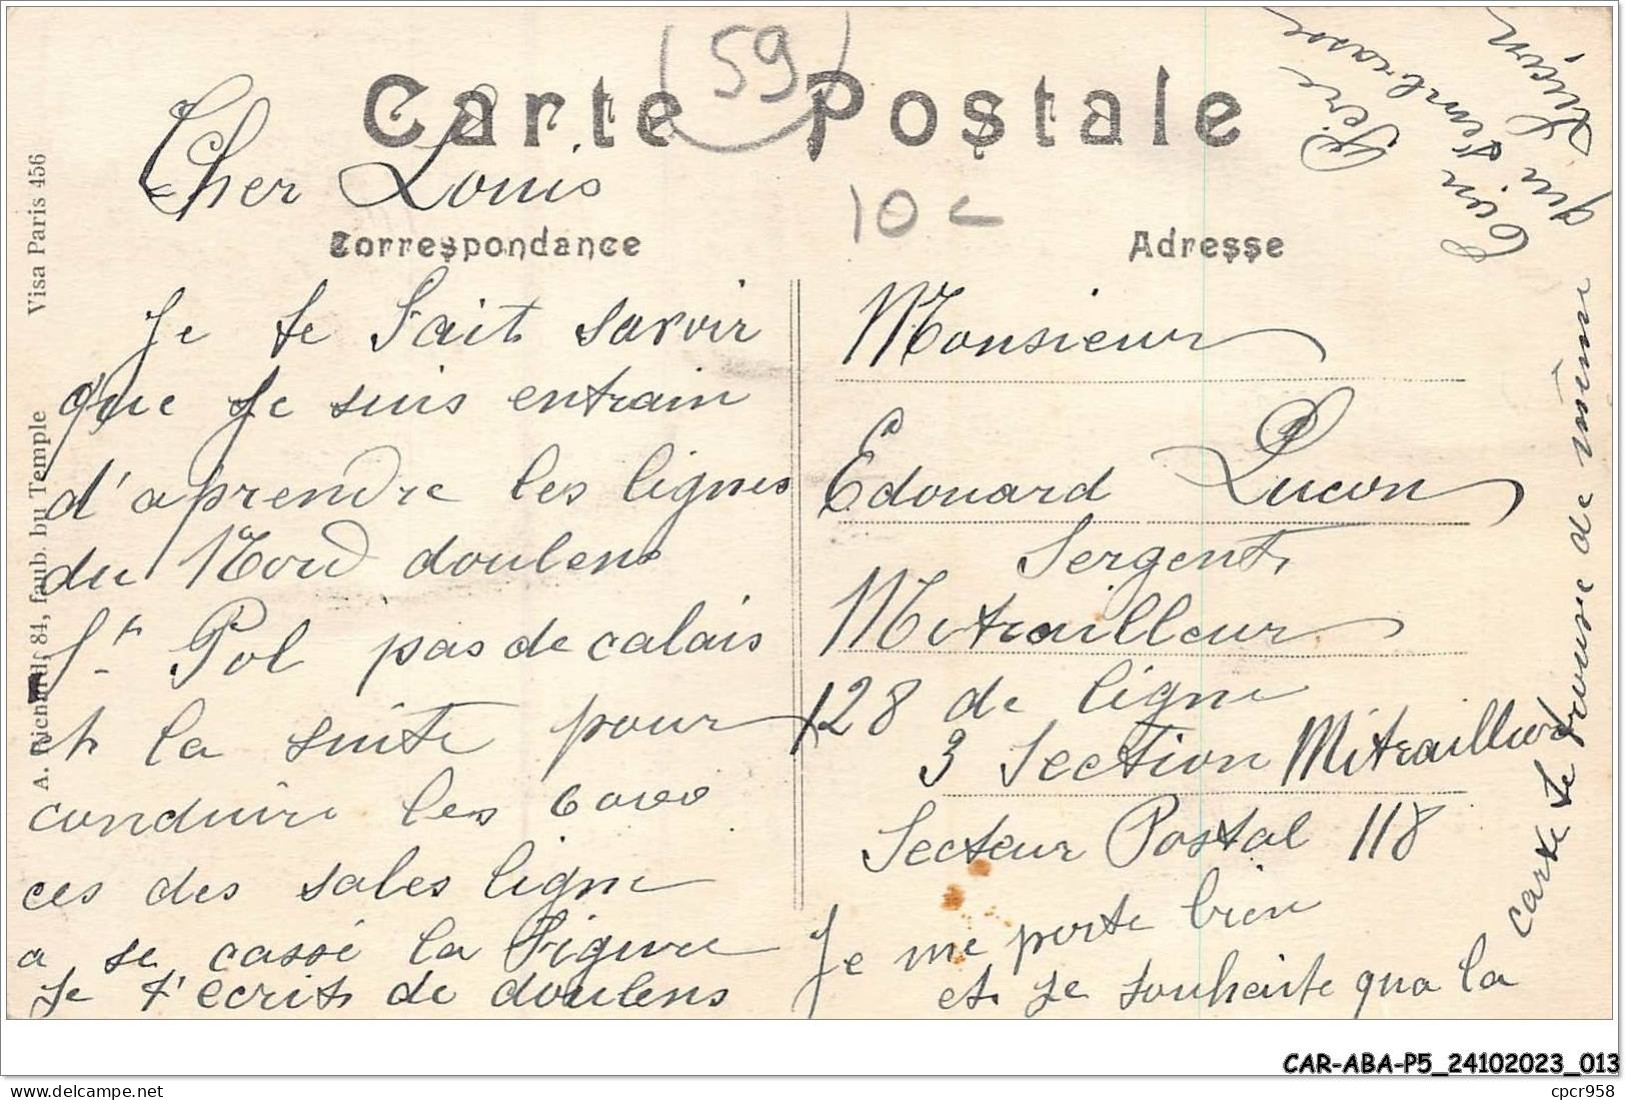 (59)
Carte Postale
10 c
Correspondance
Adresse
Visa Paris 456
84, faub. bu Temple
A.
Cher Louis
Je te fait savoir
que je suis entrain
d'aprendre les lignes
du Nord doulens
St Pol pas de calais
et la suite pour
conduire les
ces des sales ligne
a se cassé la Figure
Je t'écrit de doulens
Monsieur
Edouard Lucon
Sergent
Mitrailleur
128 de ligne
3 Section Mitrailleur
Secteur Postal 118
Je me porte bien
et je souhaite qua la
carte te trouve de même
Ton Père
qui t'embrasse
Lucon
CAR-ABA-P5_24102023_013
cpcr958